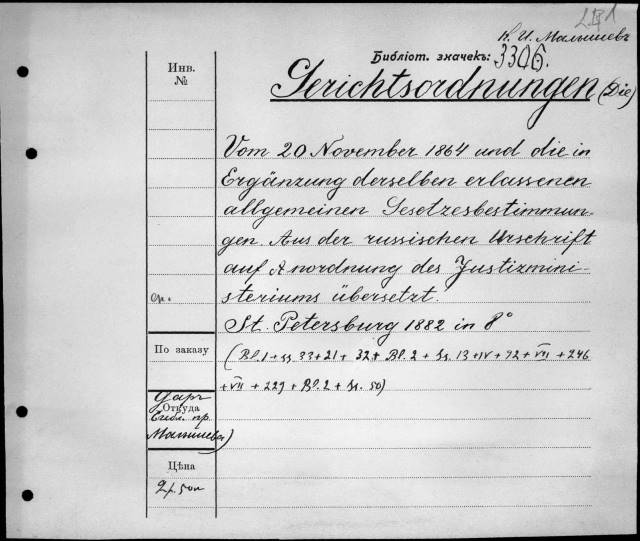 К. И. Малышевъ
Библіот. значекъ: 3306.
Gerichtsordnungen (Die)
Инв.
№
Vom 20 November 1864 und die in
Ergänzung derselben erlassenen
allgemeinen Gesetzesbestimmun-
gen. Aus der russischen Urschrift
auf Anordnung des Justizmini-
steriums übersetzt.
St. Petersburg 1882 in 8°
По заказу
(Bl. 1 + ss. 33 + 21 + 32 + Bl. 2 + ss. 13 + IV + 72 + VII + 246
+ VII + 229 + Bl. 2 + ss. 50)
Даръ
Откуда
Библ. пр.
Малышева)
Цѣна
2 р. 50 к